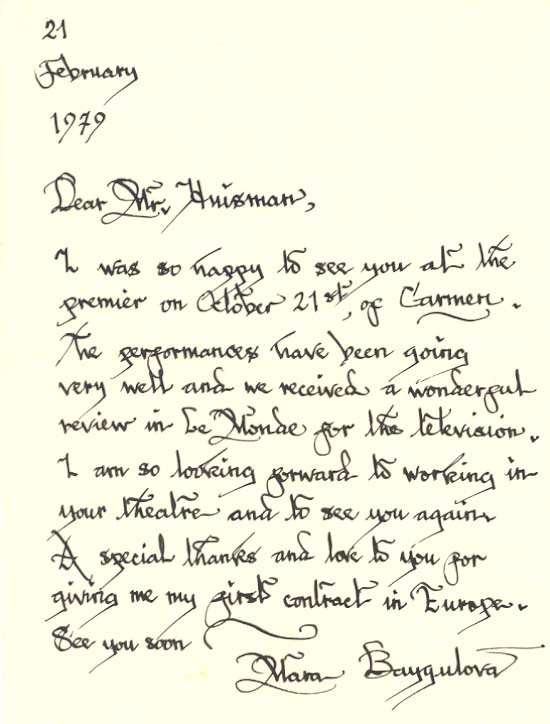 21
February
1979
Dear Mr. Huisman,
I was so happy to see you at the
premier on October 21st, of Carmen.
The performances have been going
very well and we received a wonderful
review in Le Monde for the television.
I am so looking forward to working in
your theatre and to see you again.
A special thanks and love to you for
giving me my first contract in Europe.
See you soon
Mara Baygulova